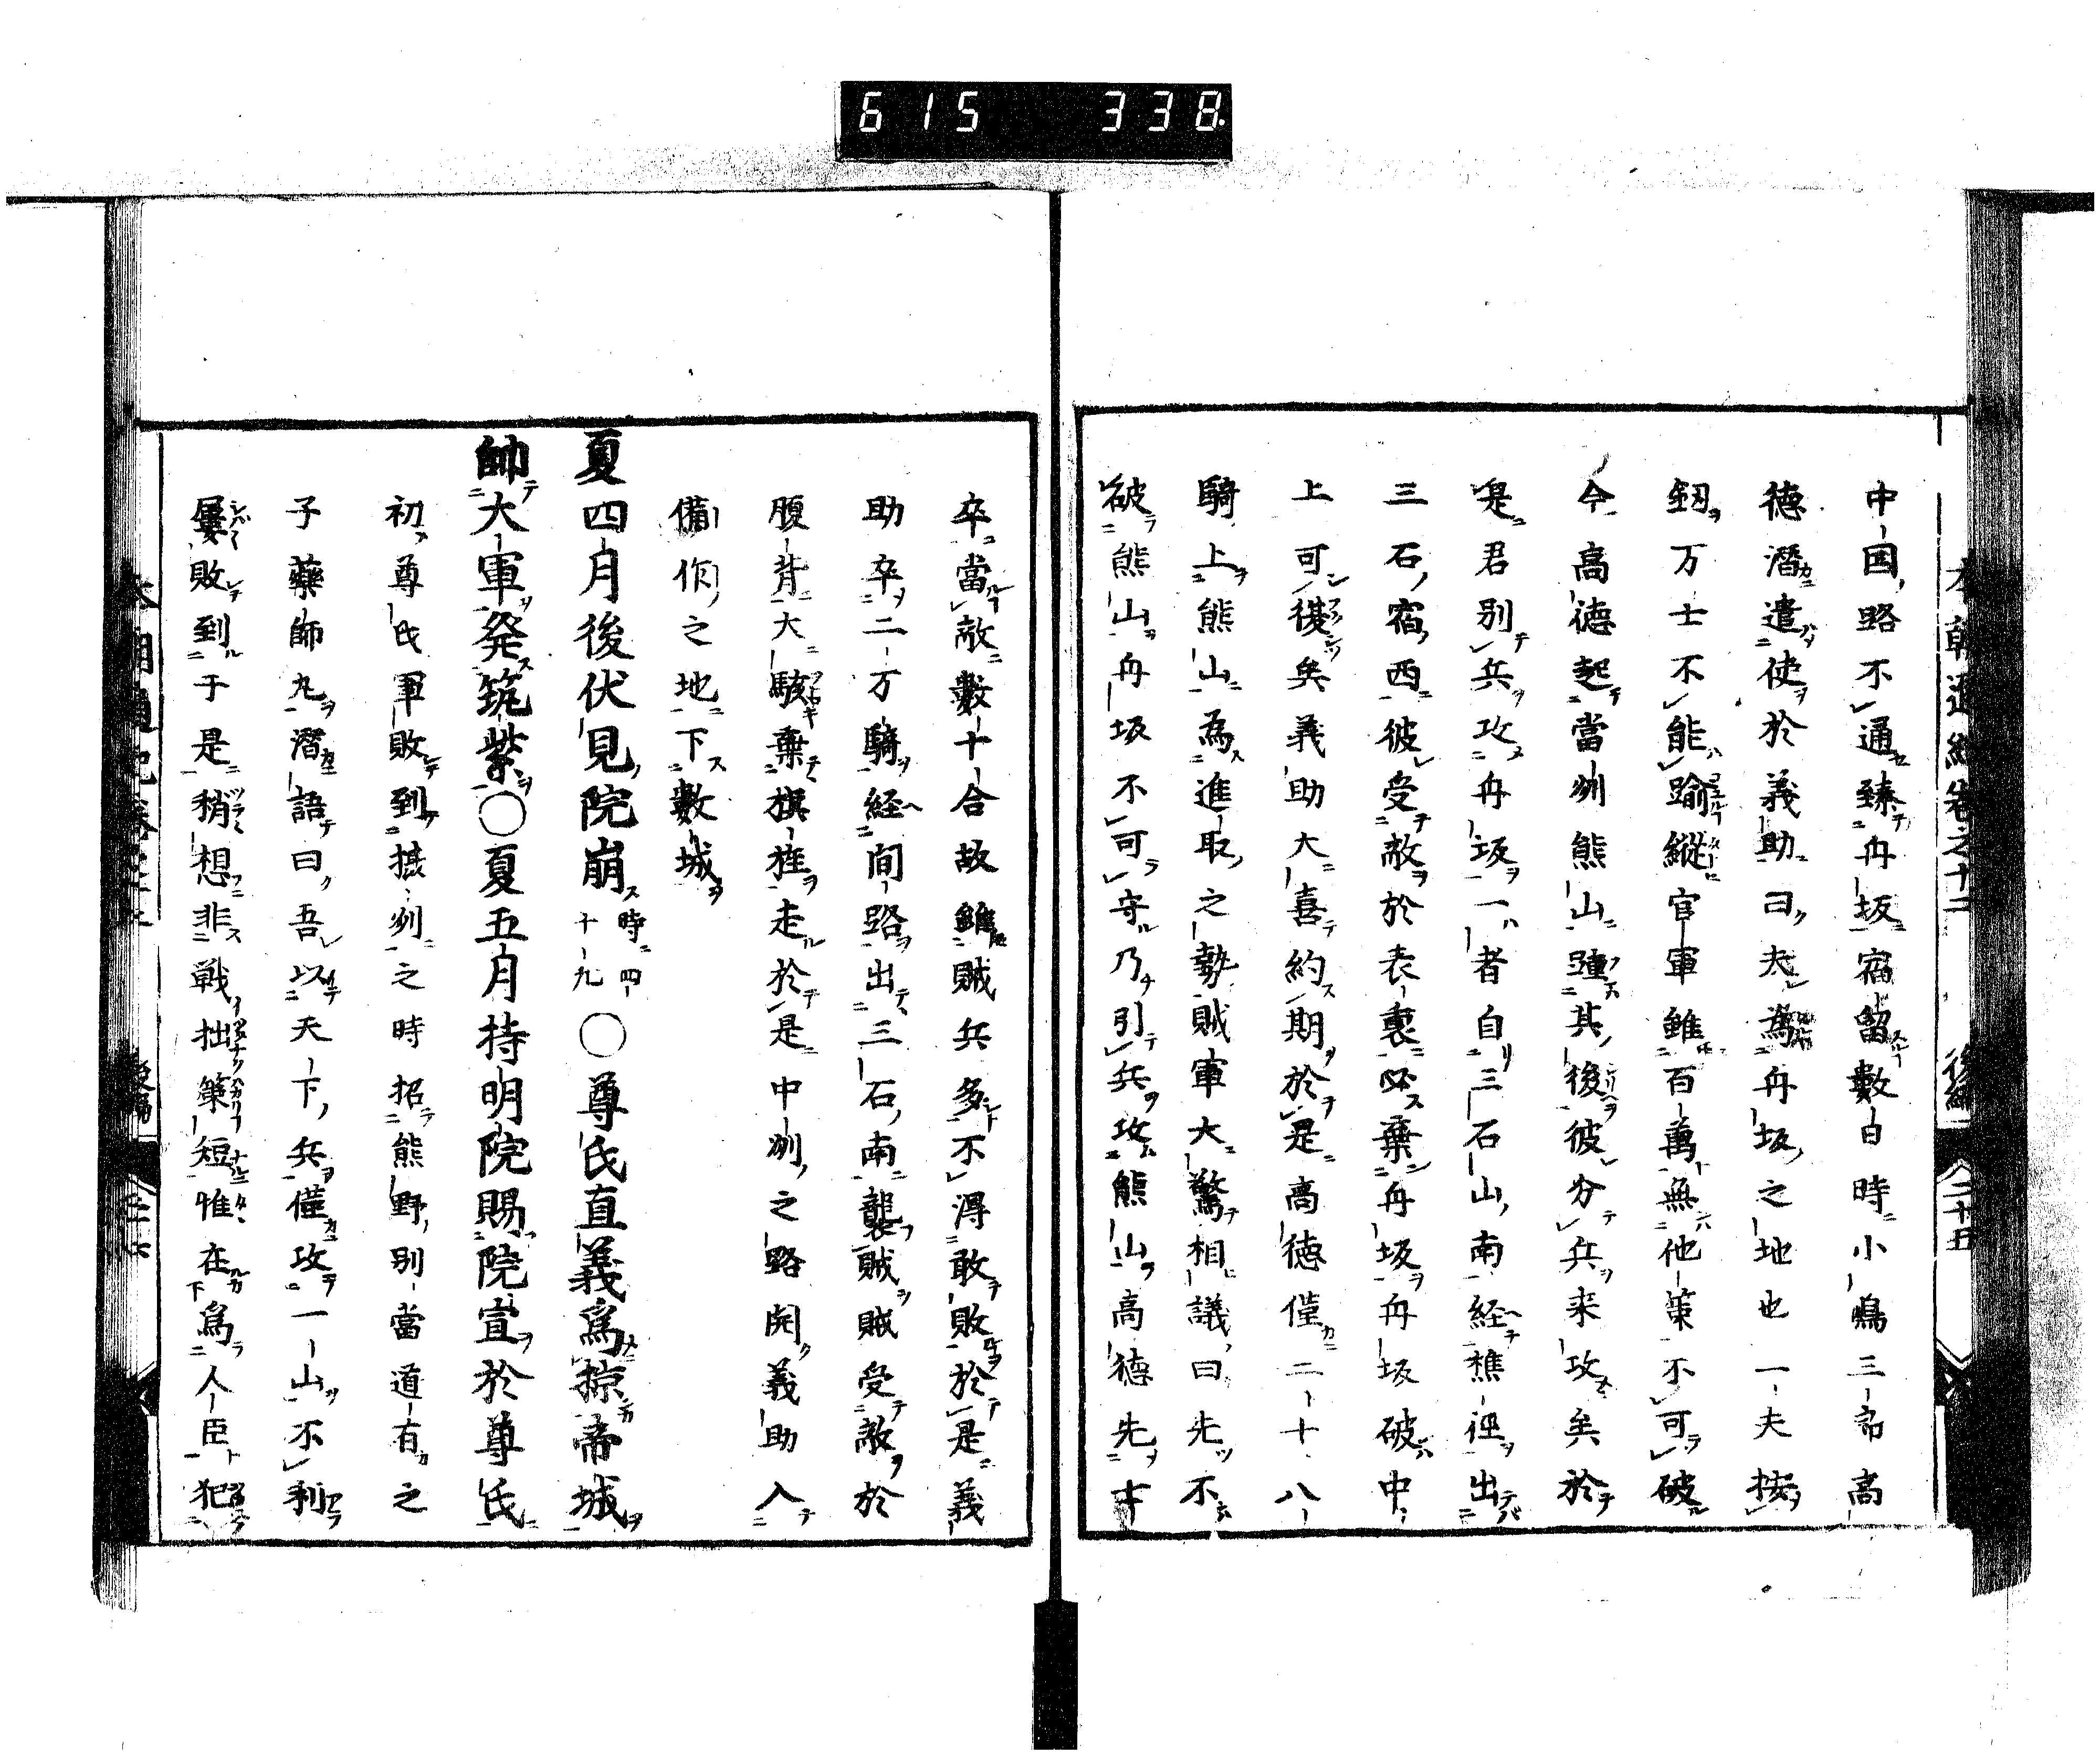 615 338
本朝通紀卷之十二 後編 二十五
中国路不通臻舟坂宿留數日時小嶋三郎高
德潛遣使於義助曰夫為舟坂之地也一夫按
釼万士不能踰縱官軍雖百萬無他策不可破
今高德起當州熊山踵其後彼分兵来攻矣於
是君別兵攻舟坂一者自三石山南経樵徑出
三石宿西彼受敵於表裏必棄舟坂舟坂破中
上可復矣義助大喜約期於是高德僅二十八
騎上熊山為進取之勢賊軍大驚相議曰先不
破熊山舟坂不可守乃引兵攻熊山高德先士
卒當敵數十合故雖賊兵多不得敢敗於是義
助卒二万騎経间路出三石南襲賊賊受敵於
腹背大駭棄旗旌走於是中州之路開義助入
備作之地下數城
夏四月後伏見院崩時四十九○尊氏直義爲掠帝城
帥大軍発筑紫○夏五月持明院賜院宣於尊氏
初尊氏軍敗到摂州之時招熊野別當道有之
子藥師丸潛語曰吾以天下兵僅攻一山不利
屢敗到于是稍想非戦拙策短惟在爲人臣犯